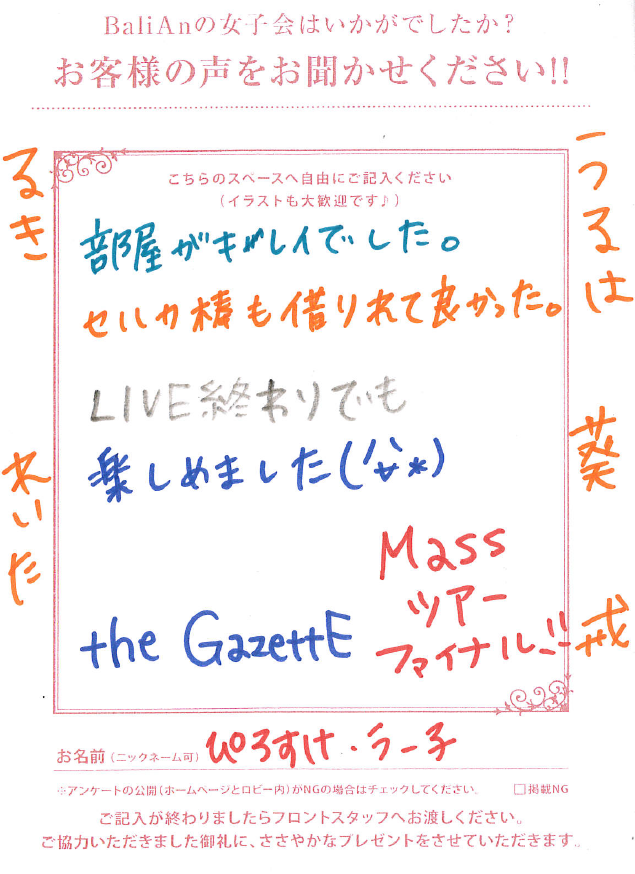 BaliAnの女子会はいかがでしたか？
お客様の声をお聞かせください!!
こちらのスペースへ自由にご記入ください
（イラストも大歓迎です♪）
部屋がキレイでした。
セルカ棒も借りれて良かった。
LIVE終わりでも
楽しめました(
Mass
ツアー
ファイナル!!
the GazettE
るき
れいた
うるは
葵
戒
お名前（ニックネーム可） ぴろすけ・うー子
※アンケートの公開（ホームページとロビー内）がNGの場合はチェックしてください。 □掲載NG
ご記入が終わりましたらフロントスタッフへお渡しください。
ご協力いただきました御礼に、ささやかなプレゼントをさせていただきます。